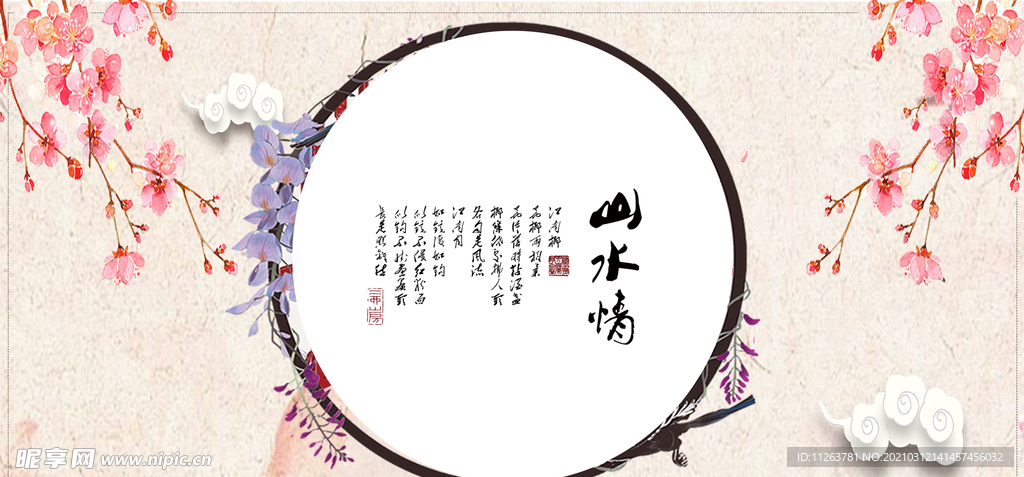 山水情
江南柳
花柳两相柔
花片落时黏酒盏
柳条低处拂人头
各自是风流
江南月
如镜复如钩
似镜不侵红粉面
似钩不挂画帘头
长是照离愁
昵享网 www.nipic.cn
ID:11263781 NO:20210312141457456032